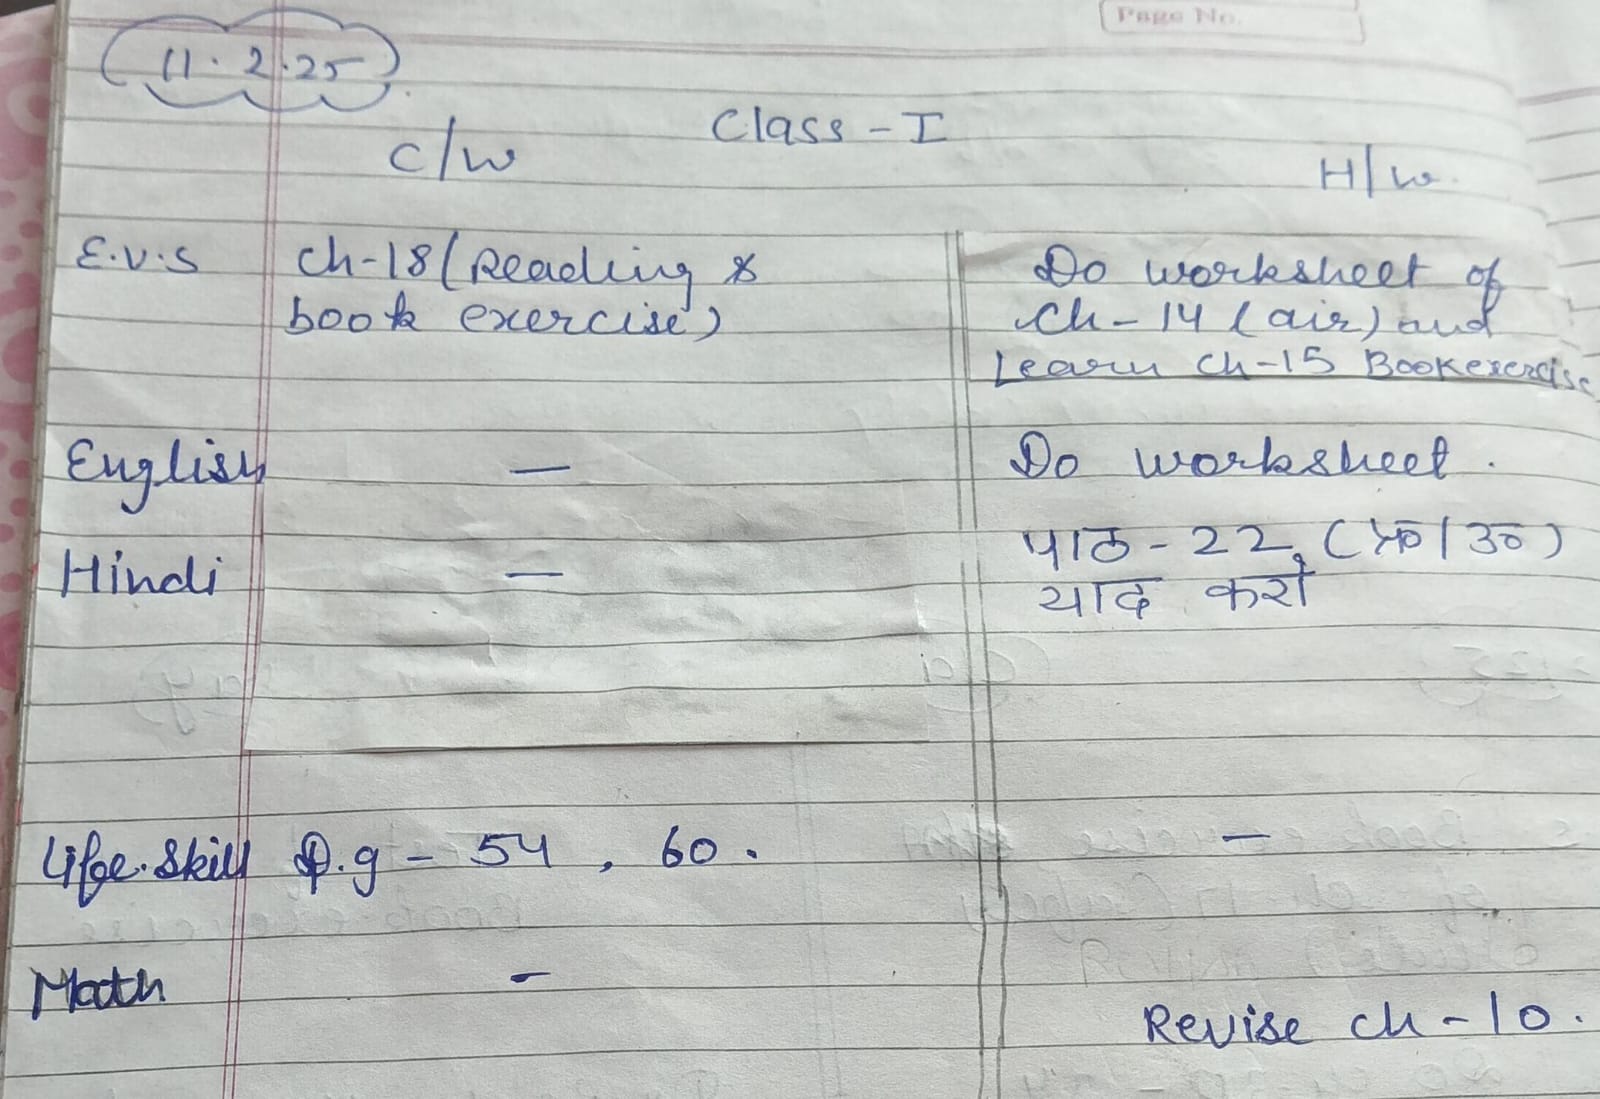 Page No.
11.2.25
Class - I
C/W
H/W.
E.V.S ch-18 (Reading & Do worksheet of
book exercise) Ch-14 (air) and
Learn Ch-15 Book exercise
English — Do worksheet.
Hindi — पाठ-22, (प्र०/उ०)
याद करो
Life.Skill P.g - 54, 60. —
Math -
Revise ch-10.